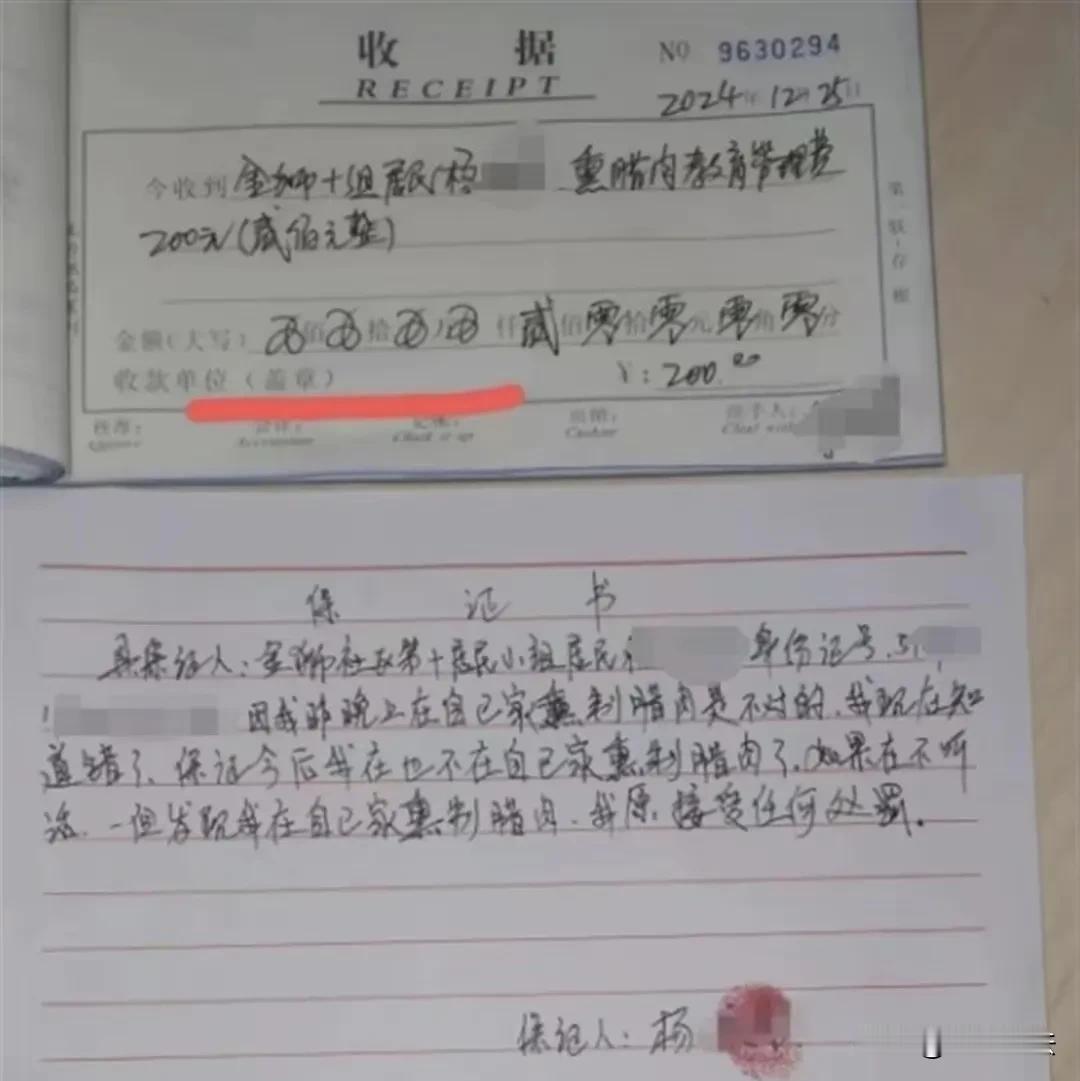 收 据
RECEIPT
NO 9630294
2024年12月25日
今收到 金狮十组居民杨 熏腊肉教育管理费
200元(贰佰元整)
金额(大写) 佰 拾 万 仟 贰佰零拾零元零角零分
收款单位(盖章) ¥:200.00
核准: 会计: 记帐: 出纳: 经手人:
Accountant Check it up Cashier
第一联:存根
保 证 书
具保证人:金狮社区第十居民小组居民 身份证号:51
因我昨晚上在自己家熏制腊肉是不对的,我现在知
道错了,保证今后我在也不在自己家熏制腊肉了,如果在不听
话,一但发现我在自己家熏制腊肉,我愿接受任何处罚。
保证人:杨